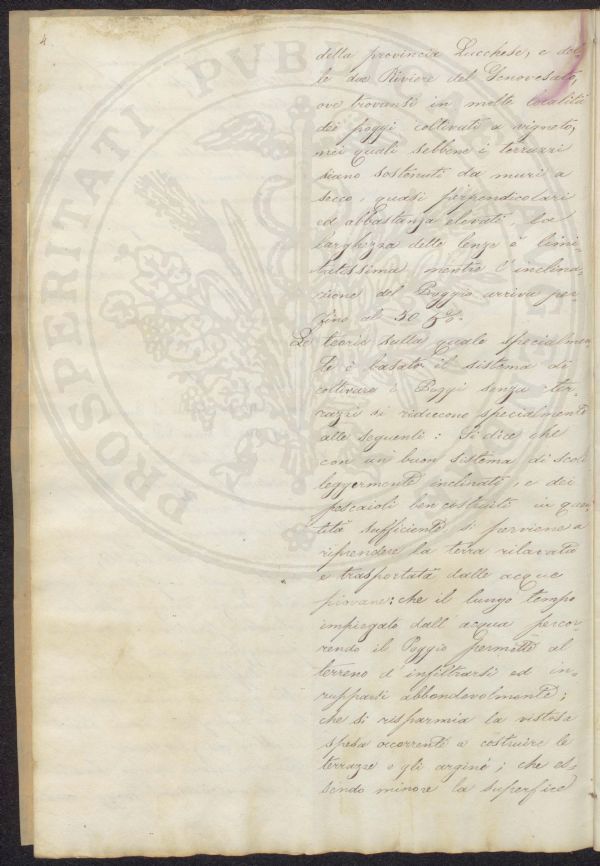 4.
della provincia Lucchese, e del-
le due Riviere del Genovesato,
ove trovansi in molte località
dei poggi coltivati a vigneto,
nei quali sebbene i terrazzi
siano sostenuti da muri a
secco, quasi perpendicolari
ed abbastanza elevati la
larghezza delle lenze è limi-
tatissima mentre l'inclina-
zione del Poggio arriva per-
fino al 50 p%.
Le teorie sulla quale specialmen-
te è basato il sistema di
coltivare i Poggi senza ter-
razzi si riducono specialmente
alle seguenti: Si dice che
con un buon sistema di scoli
leggermente inclinati, e dei
pescaioli ben costruiti in quan-
tità sufficiente si perviene a
riprendere la terra rilavata
e trasportata dalle acque
piovane; che il lungo tempo
impiegato dall'acqua percor-
rendo il Poggio permette al
terreno d'infiltrarsi ed in-
zupparsi abbondevolmente;
che si risparmia la vistosa
spesa occorrente a costruire le
terrazze o gli argini; che es-
sendo minore la superfice
PROSPERITATI PVBL